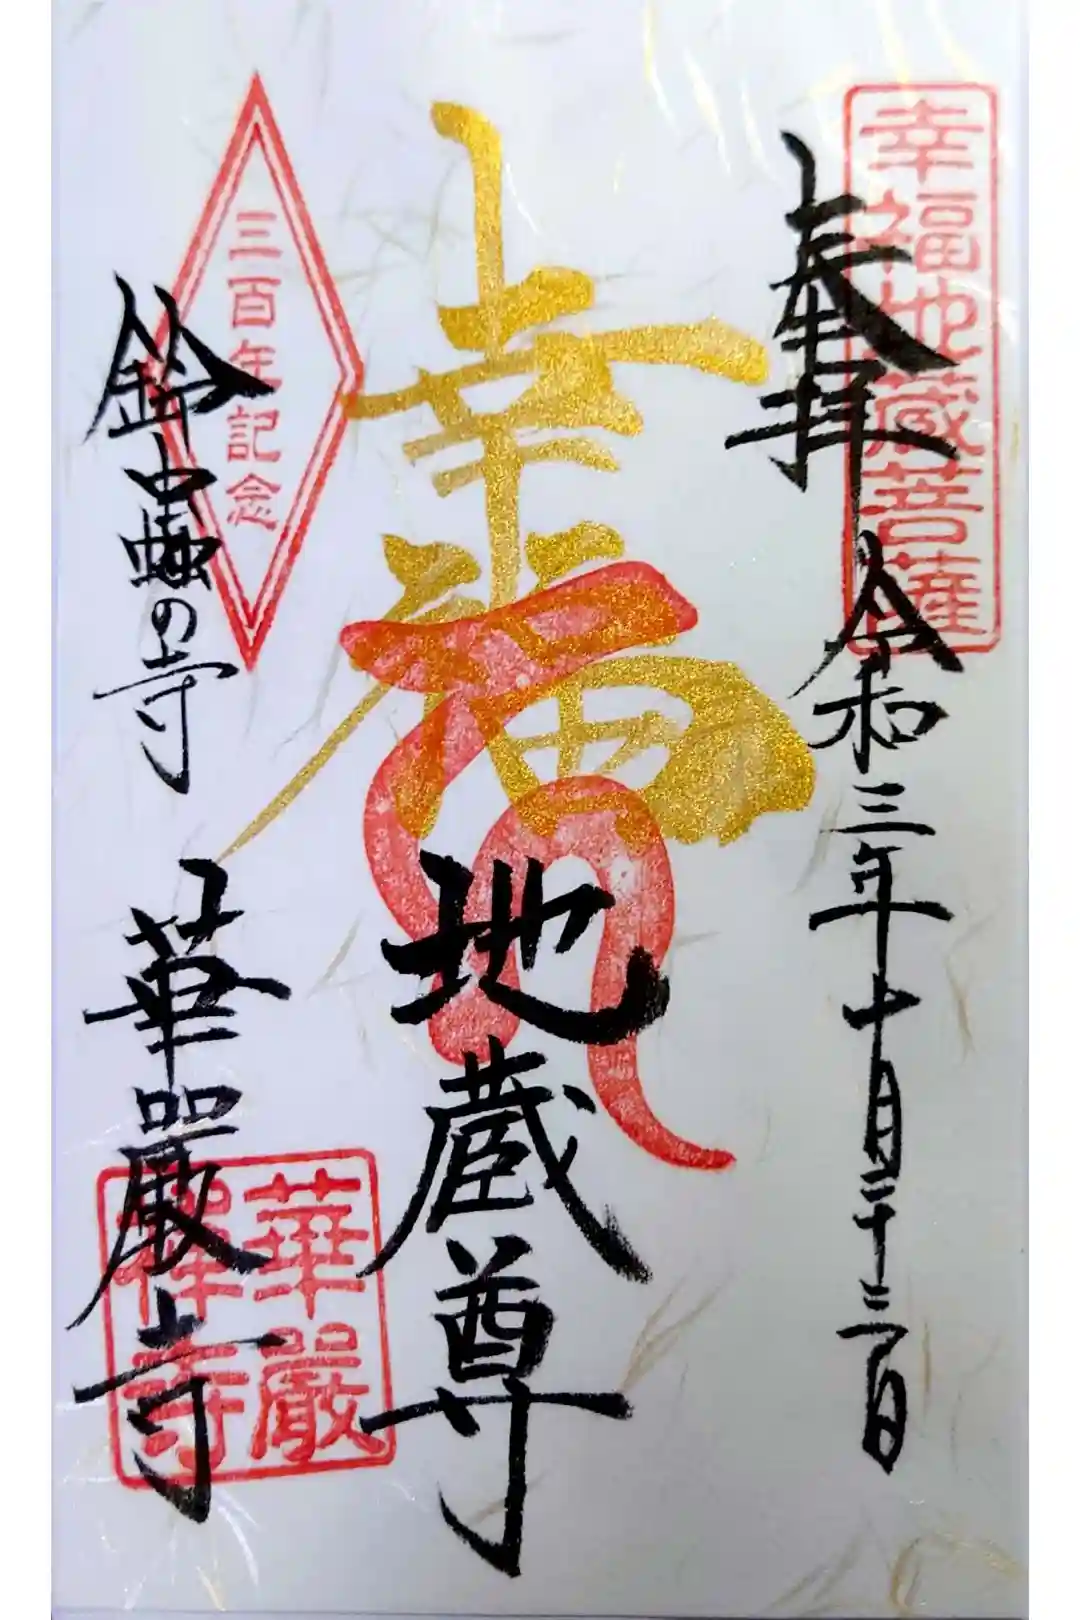 幸福地蔵菩薩
奉拝 令和三年十月二十三日
幸福
地蔵尊
三百年記念
鈴虫の寺
華嚴寺
華嚴
禅寺